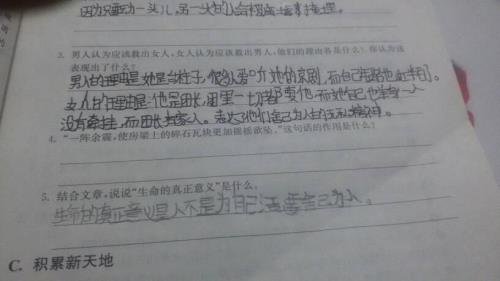 因为只要动一头儿,另一头的人会
3. 男人认为应该救出女人,女人认为应该救出男人,他们的理由各是什么?你认为这
表现出了什么?
男人的理由是:她是台柱子,
女人的理由是:他是团长,团里一切都要他,而她自己也
没有牵挂,而团长有家人。表达了他们舍己为人的
4. “一阵余震,使房梁上的碎石瓦块更加摇摇欲坠。”这句话的作用是什么?
5. 结合文章,说说“生命的真正意义”是什么。
生命的真正意义是人不是为自己活,要舍己为人。
C. 积累新天地